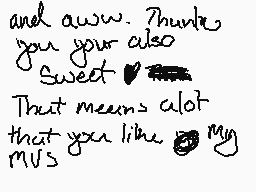 and aww. Thanks
you your also
Sweet ♥
That means alot
that you like My
MVS